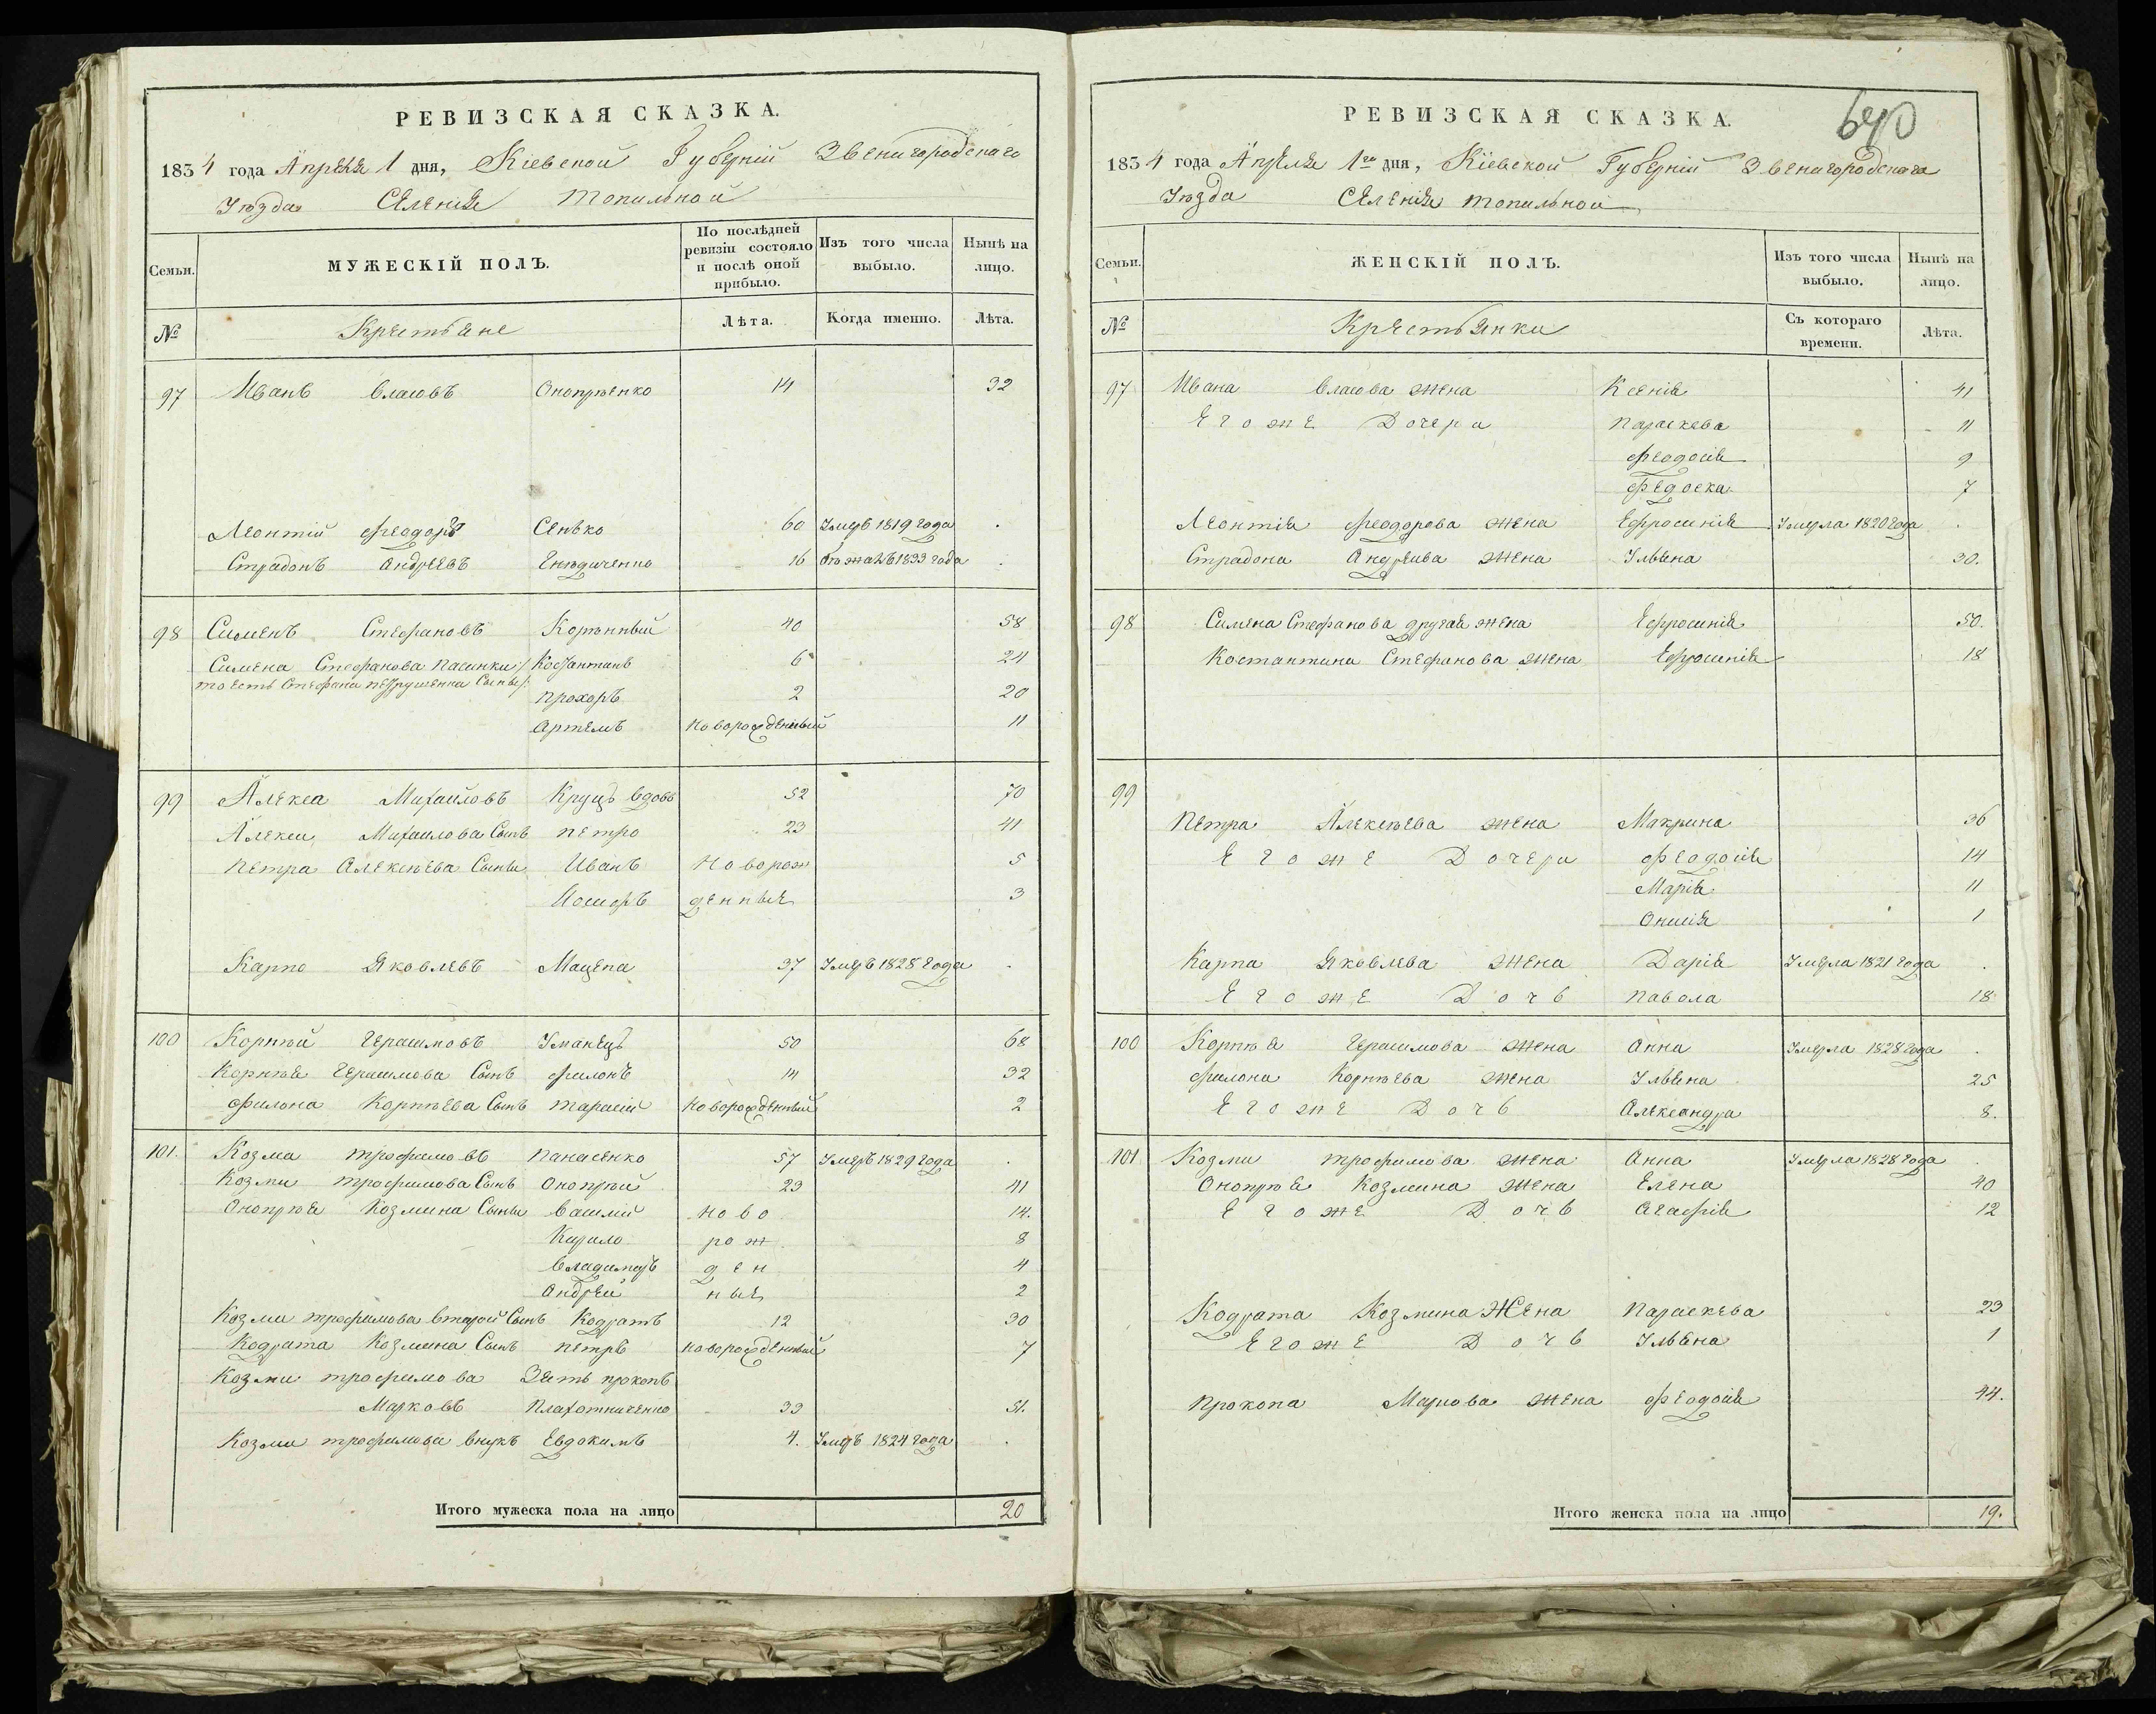 РЕВИЗСКАЯ СКАЗКА.
1834 года Апреля 1 дня, Кіевской Губерніи Звенигородскаго
Уѣзда Селенія Топильной
Семьи.
МУЖЕСКІЙ ПОЛЪ.
По послѣдней ревизіи состояло и послѣ оной прибыло.
Изъ того числа выбыло.
Нынѣ на лицо.
№
Крестьяне
Лѣта.
Когда именно.
Лѣта.
97 Иванъ Власовъ Онопрѣенко 14 32
Леонтій Феодоръ Сенько 60 Умеръ 1819 года .
Страдонъ Андреевъ 16 1833 года .
98 Сименъ Стефановъ Корѣнный 40 58
Симена Стефанова пасинки / Костантинъ 6 24
то есть Стефана Сыны /
Прохоръ 2 20
Артемъ Новорожденный 11
99 Алекса Михайловъ Круцъ вдовъ 52 70
Алекси Михайлова Сынъ Петро 23 41
Петра Алексѣева Сыны Иванъ Новорож 5
Иосифъ денные 3
Карпо Яковлевъ Мацепа 37 Умеръ 1828 года .
100 Корнѣй Герасимовъ Уманецъ 50 68
Корнѣя Герасимова Сынъ Филонъ 14 32
Филона Корнѣева Сынъ Тарасій Новорожденный 2
101. Козма Трофимовъ Панасенко 57 Умеръ 1829 года .
Козми Трофимова Сынъ Онопрѣй 23 41
Онопрѣя Козмина Сыны Василій Ново 14.
Кирило рож 8
Владимеръ ден 4
Андрей ные 2
Козми Трофимова второй Сынъ Кодратъ 12 30
Кодрата Козмина Сынъ Петръ Новорожденный 7
Козми Трофимова Зять Прокопъ
Марковъ Плахотниченко 33 51.
Козми Трофимова внукъ Евдокимъ 4. Умеръ 1824 года .
Итого мужеска пола на лицо 20
640
РЕВИЗСКАЯ СКАЗКА.
1834 года Апреля 1го дня, Кіевской Губерніи Звенигородскаго
Уѣзда Селенія Топильной
Семьи.
ЖЕНСКІЙ ПОЛЪ.
Изъ того числа выбыло.
Нынѣ на лицо.
№
Крестьянки
Съ котораго времени.
Лѣта.
97 Ивана Власова жена Ксенія 41
Егоже Дочери Параскева 11
Феодосія 9
Федоска 7
Леонтія Феодорова жена Ефросинія Умерла 1820 года .
Страдона Андреива жена Ульяна 30.
98 Симена Стефанова другая жена Ефросинія 50.
Костантина Стефанова жена Ефросинія 18
99
Петра Алексѣева жена Макрина 36
Егоже Дочери Феодосія 14
Марія 11
Онисія 1
Карпа Яковлева жена Дарія Умерла 1821 года .
Егоже Дочь Павола 18
100 Корнѣя Герасимова жена Анна Умерла 1828 года .
Филона Корнѣева жена Ульяна 25
Егоже Дочь Александра 8.
101 Козми Трофимова жена Анна Умерла 1828 года .
Онопрѣя Козмина жена Елена 40
Егоже Дочь Агафія 12
Кодрата Козмина Жена Параскева 23
Егоже Дочь Ульяна 1
Прокопа Маркова жена Феодосія 44.
Итого женска пола на лицо 19.